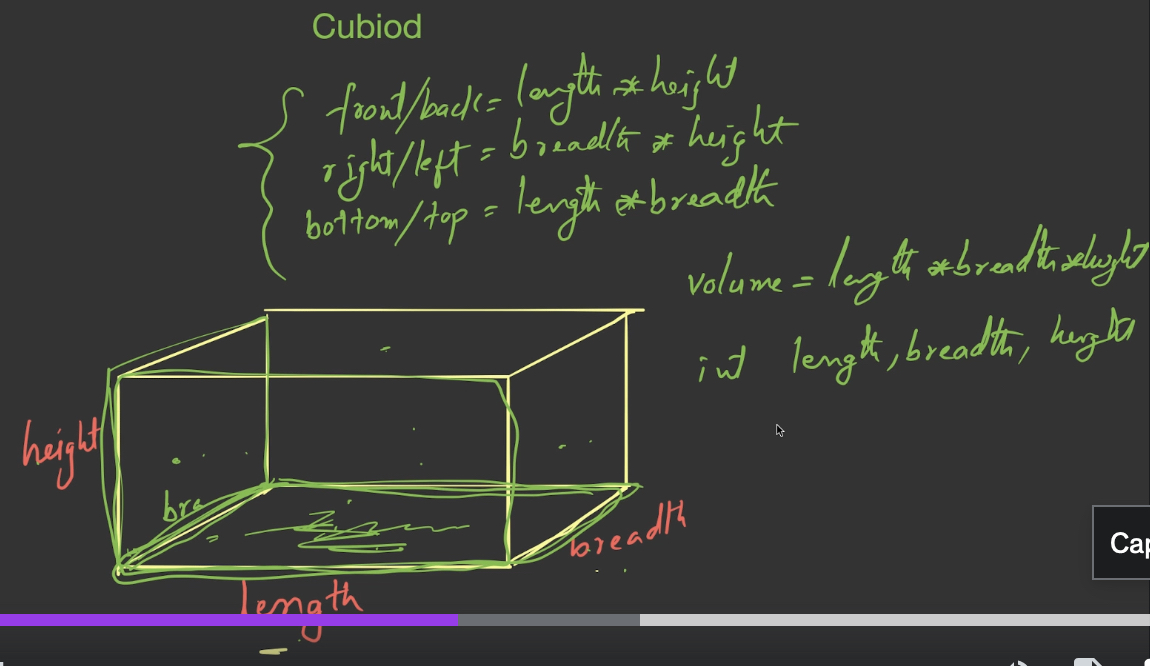 Cubiod
front/back = length * height
right/left = breadth * height
bottom/top = length * breadth
volume = length * breadth * height
int length, breadth, height
height
bre
breadth
length
Cap